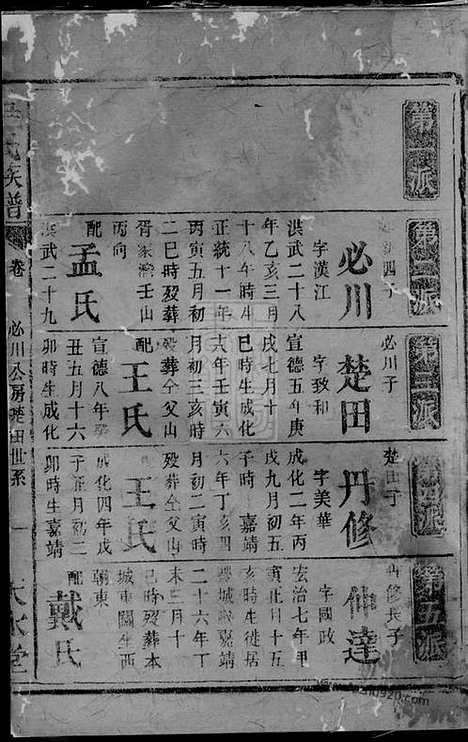 第一派
第二派
四子
必川
字漢江
洪武二十八
年乙亥三月
十八年時生
正統十一年
丙寅五月初
二巳時歿葬
壬山
丙向
配
孟氏
洪武二十九
第三派
必川子
楚田
字致和
宣德五年庚
戌七月十
巳時生成化
六年壬寅六
月初三亥時
歿葬仝父山
配
王氏
宣德八年
丑五月十六
卯時生成化
第四派
楚田子
丹修
字美華
成化二年丙
戌九月初五
子時 嘉靖
六年丁亥四
月初二寅時
歿葬仝父山
配
王氏
成化四年戊
子正月初二
卯時生嘉靖
第五派
丹修長子
仙達
字國政
宏治七年甲
寅 月十五
亥時生徙居
城 嘉靖
二十六年丁
未三月十
巳時歿葬本
城東關生西
朝東
配
戴氏
氏族譜
卷
必川公房楚田世系
一
大 堂